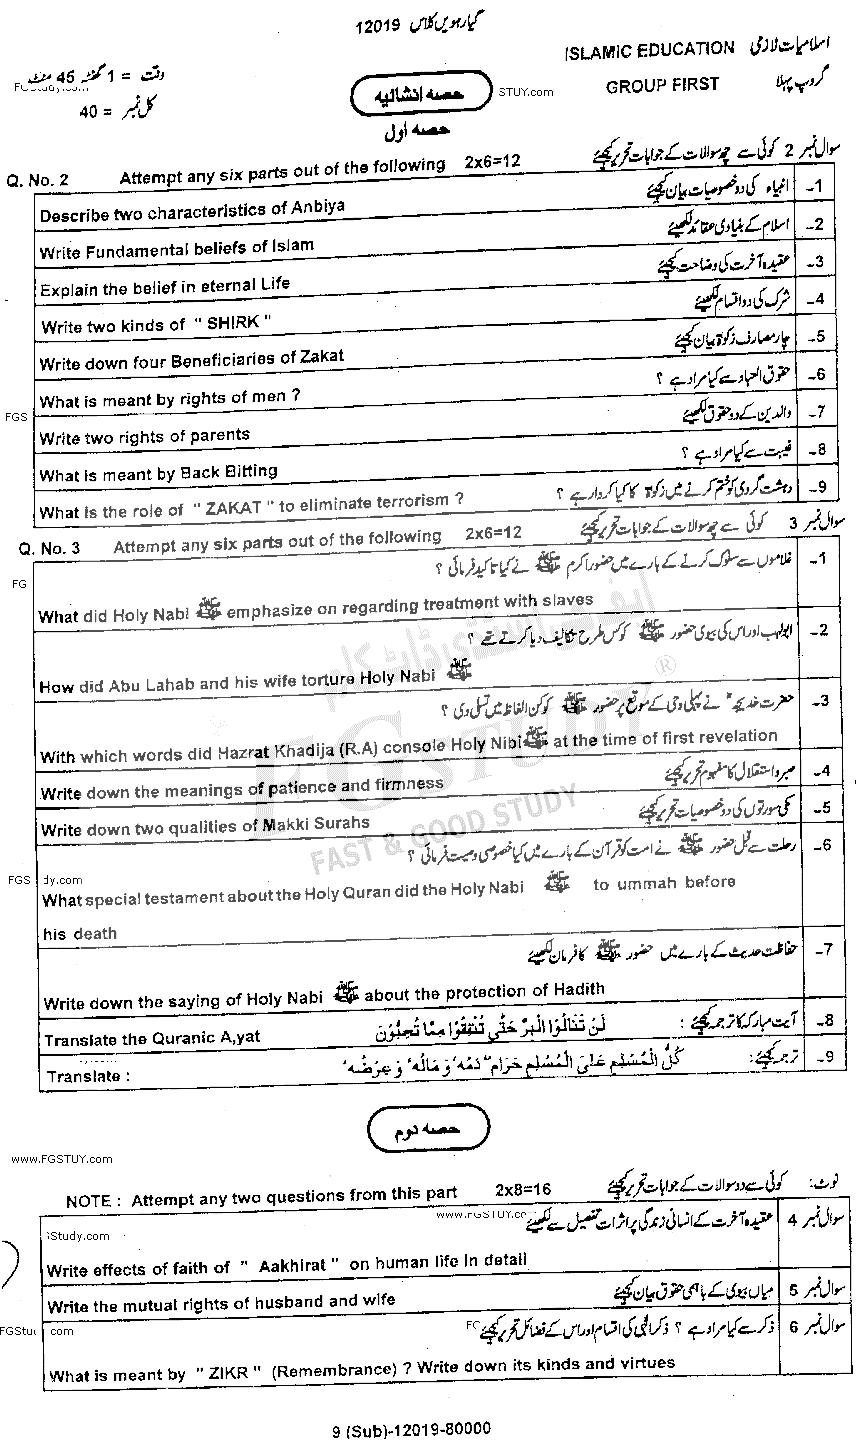 گیارہویں کلاس 12019
ISLAMIC EDUCATION اسلامیات لازمی
وقت = 1 گھنٹہ 45 منٹ
GROUP FIRST گروپ پہلا
حصہ انشائیہ
STUY.com
کل نمبر = 40
حصہ اول
سوال نمبر 2 کوئی سے چھ سوالات کے جوابات تحریر کیجئے
Q. No. 2 Attempt any six parts out of the following 2x6=12
1- انبیاء کی دو خصوصیات بیان کیجئے
Describe two characteristics of Anbiya
2- اسلام کے بنیادی عقائد لکھیئے
Write Fundamental beliefs of Islam
3- عقیدہ آخرت کی وضاحت کیجئے
Explain the belief in eternal Life
4- شرک کی دو اقسام لکھیئے
Write two kinds of " SHIRK "
5- چار مصارف زکوٰۃ بیان کیجئے
Write down four Beneficiaries of Zakat
6- حقوق العباد سے کیا مراد ہے ؟
What is meant by rights of men ?
7- والدین کے دو حقوق لکھیئے
FGS
Write two rights of parents
8- غیبت سے کیا مراد ہے ؟
What is meant by Back Bitting
9- دہشت گردی کو ختم کرنے میں زکوٰۃ کا کیا کردار ہے ؟
What is the role of " ZAKAT " to eliminate terrorism ?
سوال نمبر 3 کوئی سے چھ سوالات کے جوابات تحریر کیجئے
Q. No. 3 Attempt any six parts out of the following 2x6=12
1- غلاموں سے سلوک کرنے کے بارے میں حضور اکرم ﷺ نے کیا تاکید فرمائی ؟
FG
What did Holy Nabi ﷺ emphasize on regarding treatment with slaves
2- ابولہب اور اس کی بیوی حضور ﷺ کو کس طرح تکالیف دیا کرتے تھے ؟
How did Abu Lahab and his wife torture Holy Nabi ﷺ
3- حضرت خدیجہ نے پہلی وحی کے موقع پر حضور ﷺ کو کن الفاظ میں تسلی دی ؟
With which words did Hazrat Khadija (R.A) console Holy Nibi ﷺ at the time of first revelation
4- صبر و استقلال کا مفہوم تحریر کیجئے
Write down the meanings of patience and firmness
5- مکی سورتوں کی دو خصوصیات تحریر کیجئے
Write down two qualities of Makki Surahs
6- رحلت سے قبل حضور ﷺ نے امت کو قرآن کے بارے میں کیا خصوصی وصیت فرمائی ؟
FGS dy.com
What special testament about the Holy Quran did the Holy Nabi ﷺ to ummah before
his death
7- حفاظت حدیث کے بارے میں حضور ﷺ کا فرمان لکھیئے
Write down the saying of Holy Nabi ﷺ about the protection of Hadith
8- آیت مبارکہ کا ترجمہ کیجئے : لَنْ تَنَالُوا الْبِرَّ حَتّٰى تُنْفِقُوْا مِمَّا تُحِبُّوْنَ
Translate the Quranic A,yat
9- ترجمہ کیجئے : كُلُّ الْمُسْلِمِ عَلَى الْمُسْلِمِ حَرَامٌ دَمُهٗ وَ مَالُهٗ وَ عِرْضُهٗ
Translate :
ایف جی اسٹڈی ڈاٹ کام
FGSTUDY ®
FAST & GOOD STUDY
حصہ دوم
www.FGSTUY.com
نوٹ: کوئی سے دو سوالات کے جوابات تحریر کیجئے
NOTE : Attempt any two questions from this part 2x8=16
سوال نمبر 4 عقیدہ آخرت کے انسانی زندگی پر اثرات تفصیل سے لکھیئے
www.FGSTUY.co
iStudy.com
Write effects of faith of " Aakhirat " on human life In detail
سوال نمبر 5 میاں بیوی کے باہمی حقوق بیان کیجئے
Write the mutual rights of husband and wife
سوال نمبر 6 ذکر سے کیا مراد ہے ؟ ذکر الٰہی کی اقسام اور اس کے فضائل تحریر کیجئے
FGStu com
What is meant by " ZIKR " (Remembrance) ? Write down its kinds and virtues
9 (Sub)-12019-80000